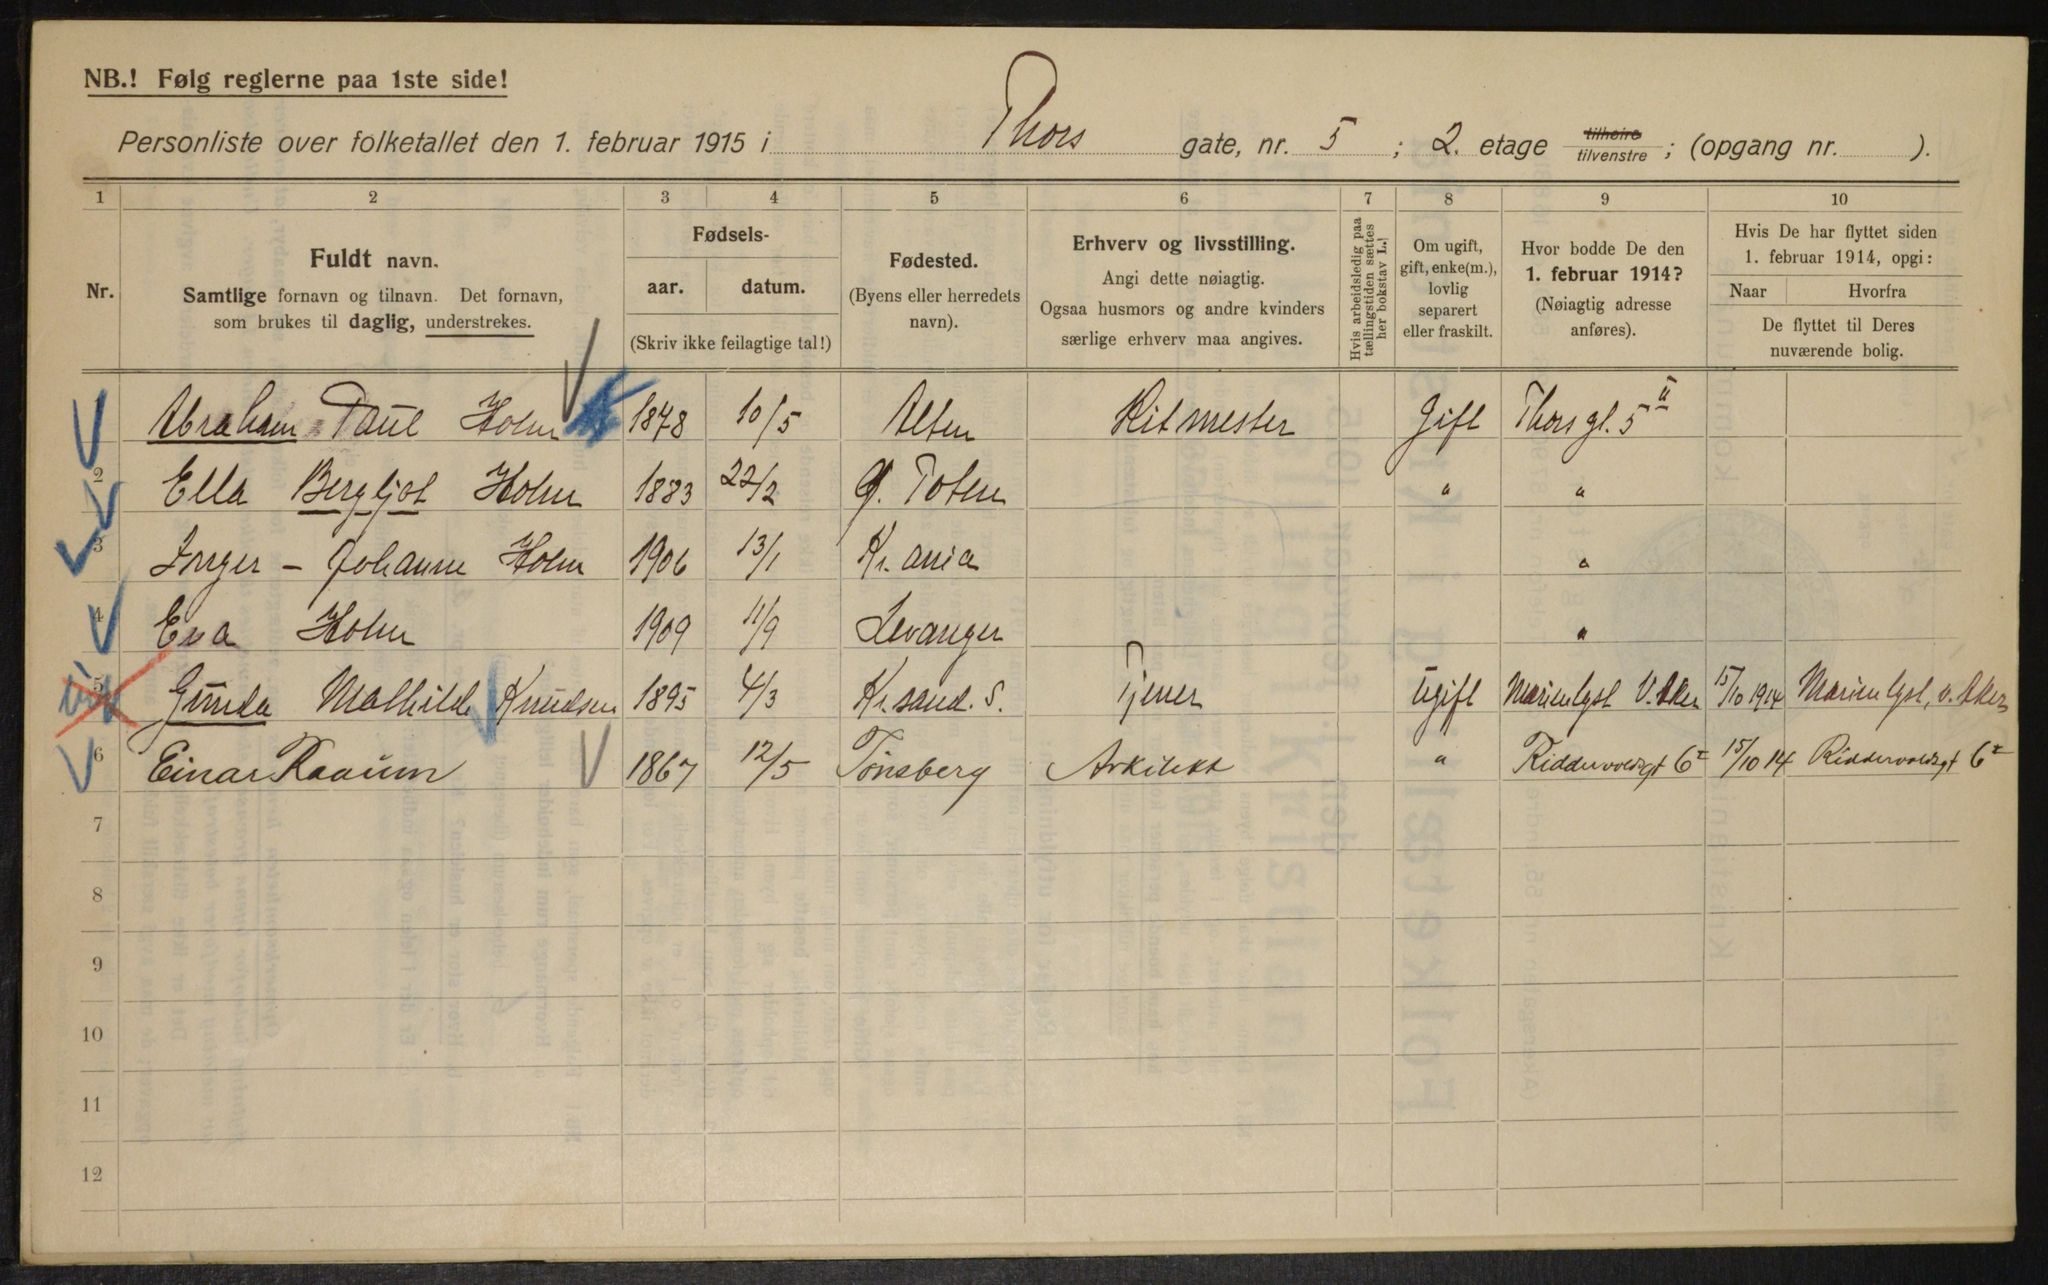 NB.! Følg reglerne paa 1ste side!
Personliste over folketallet den 1. februar 1915 i Thors gate, nr. 5 ; 2. etage tilhøire tilvenstre ; (opgang nr. ).
1 2 3 4 5 6 7 8 9 10
Nr.
Fuldt navn.
Samtlige fornavn og tilnavn. Det fornavn,
som brukes til daglig, understrekes.
Fødsels-
aar. datum.
(Skriv ikke feilagtige tal!)
Fødested.
(Byens eller herredets
navn).
Erhverv og livsstilling.
Angi dette nøiagtig.
Ogsaa husmors og andre kvinders
særlige erhverv maa angives.
Hvis arbeidsledig paa
tællingstiden sættes
her bokstav L.
Om ugift,
gift, enke(m.),
lovlig
separert
eller fraskilt.
Hvor bodde De den
1. februar 1914?
(Nøiagtig adresse
anføres).
Hvis De har flyttet siden
1. februar 1914, opgi:
Naar Hvorfra
De flyttet til Deres
nuværende bolig.
Abraham Paul Holm 1878 10/5 Alten Ritmester Gift Thorsgt. 5 II
2 Ella Bergljot Holm 1883 22/2 Ø. Toten " "
3 Inger - Johanne Holm 1906 13/1 Kr.ania "
4 Eva Holm 1909 11/9 Levanger "
5 Gunda Mathilde Knudsen 1895 4/3 Kr.sand. S. Tjener Ugift Marienlyst V. Aker 15/10 1914 Marienlyst, V. Aker
6 Einar Kaaum 1867 12/5 Tønsberg Arkitekt " Riddervoldsgt 6 15/10 14 Riddervoldsgt 6
7
8
9
10
11
12